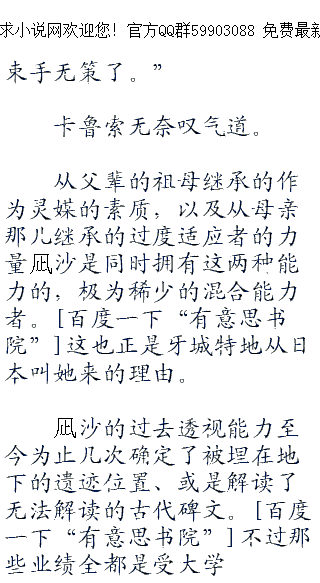 求小说网欢迎您！官方QQ群59903088 免费最新
束手无策了。”
卡鲁索无奈叹气道。
从父辈的祖母继承的作
为灵媒的素质，以及从母亲
那儿继承的过度适应者的力
量凪沙是同时拥有这两种能
力的，极为稀少的混合能力
者。[百度一下“有意思书
院”]这也正是牙城特地从日
本叫她来的理由。
凪沙的过去透视能力至
今为止几次确定了被埋在地
下的遗迹位置、或是解读了
无法解读的古代碑文。[百度
一下“有意思书院”]不过那
些业绩全都是受大学